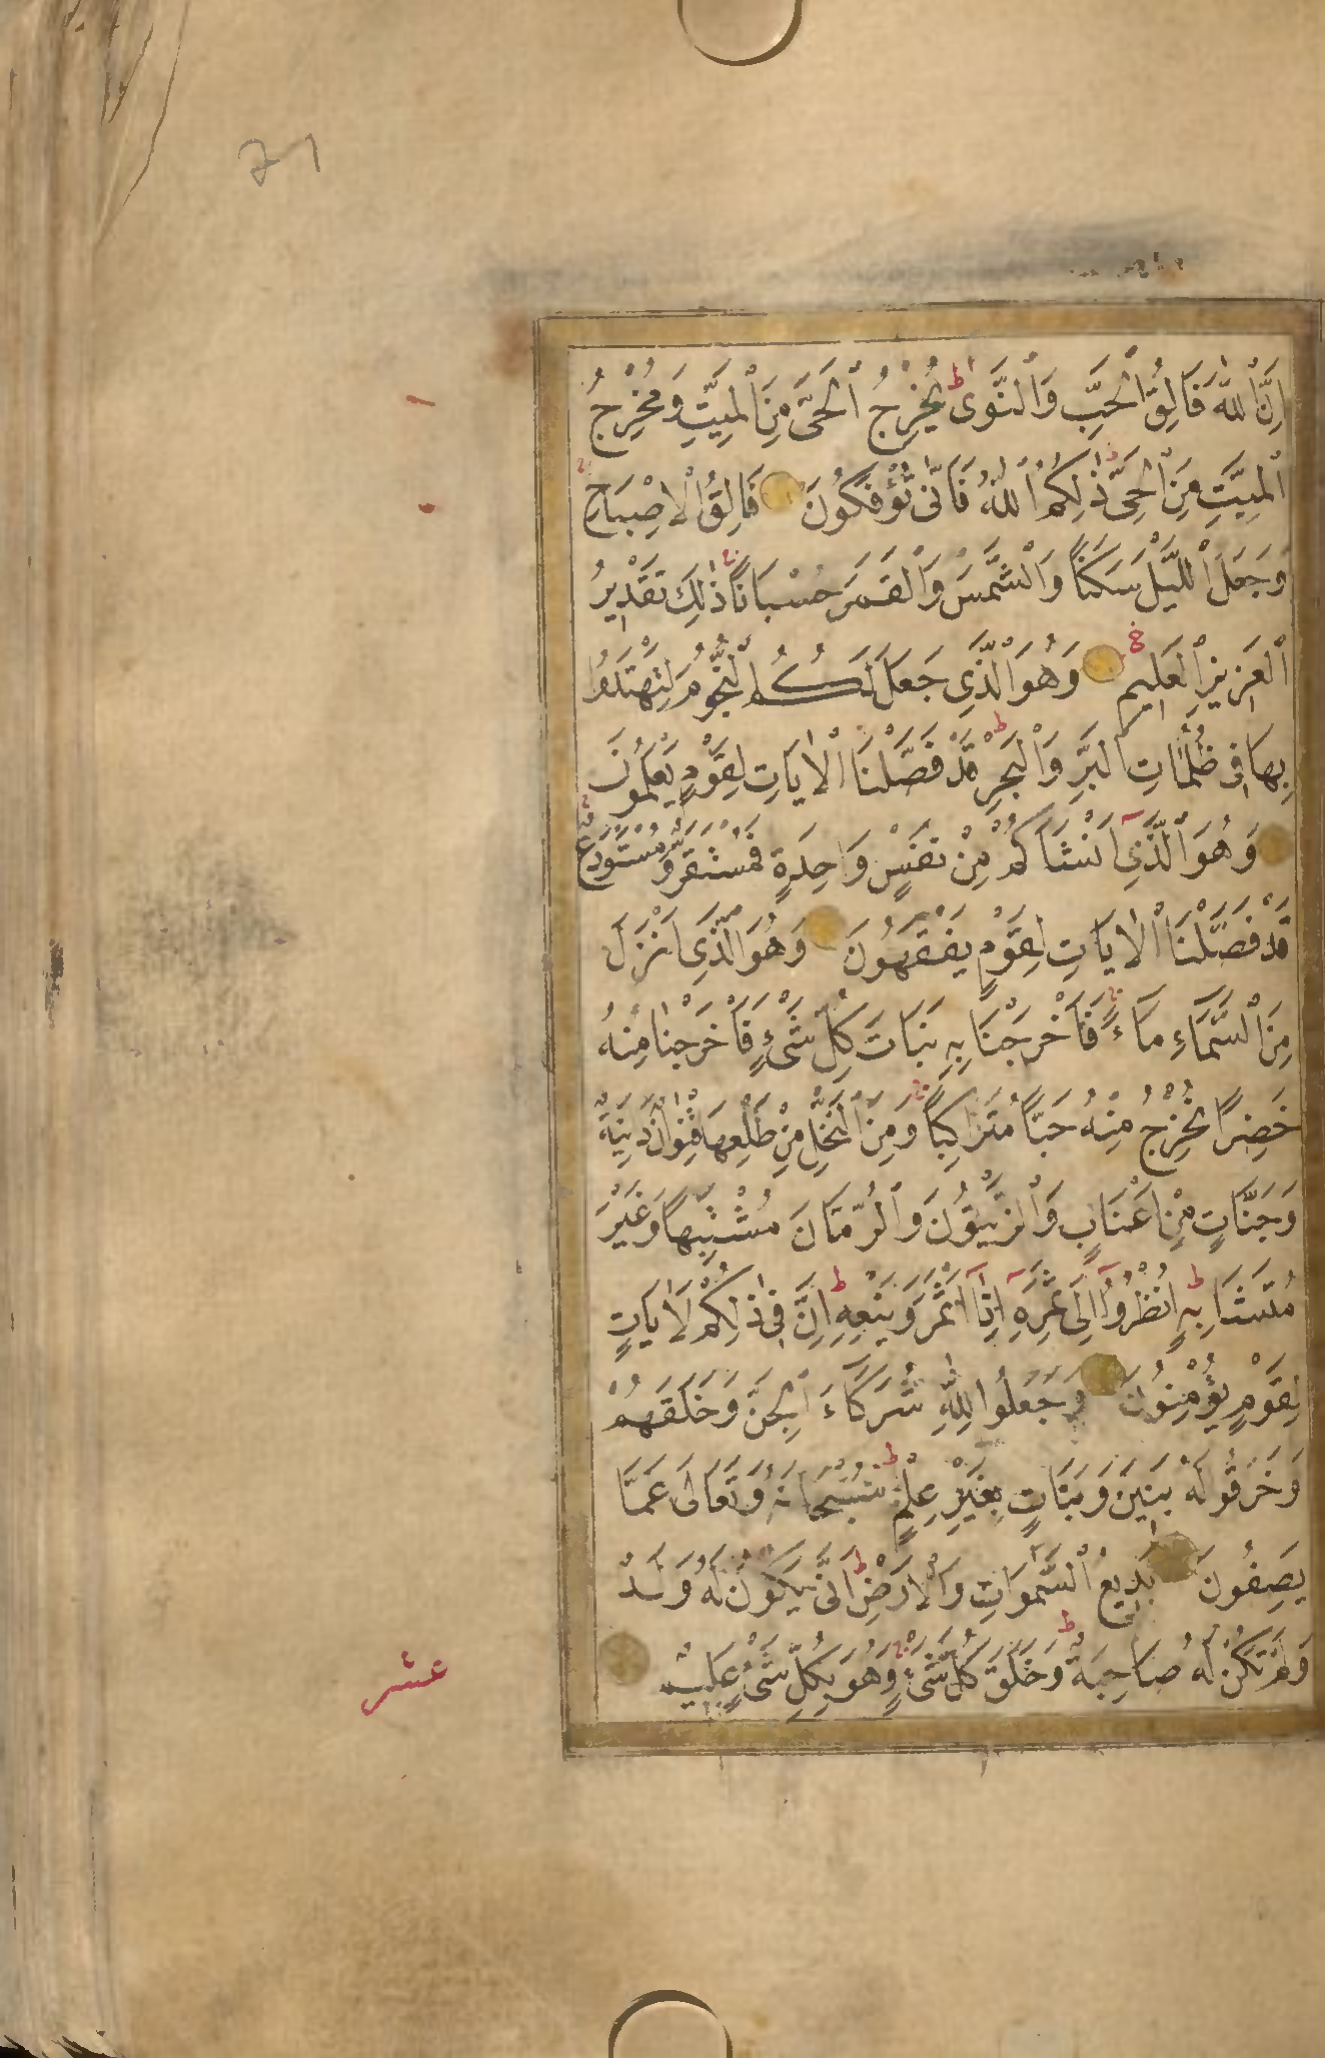 71
اِنَّ اللّٰهَ فَالِقُ الْحَبِّ وَالنَّوٰى يُخْرِجُ الْحَىَّ مِنَ الْمَيِّتِ وَمُخْرِجُ
الْمَيِّتِ مِنَ الْحَىِّ ذٰلِكُمُ اللّٰهُ فَاَنّٰى تُؤْفَكُونَ فَالِقُ الْاِصْبَاحِ
وَجَعَلَ اللَّيْلَ سَكَنًا وَالشَّمْسَ وَالْقَمَرَ حُسْبَانًا ذٰلِكَ تَقْدِيرُ
الْعَزِيزِ الْعَلِيمِ وَهُوَ الَّذِى جَعَلَ لَكُمُ النُّجُومَ لِتَهْتَدُوا
بِهَا فِى ظُلُمَاتِ الْبَرِّ وَالْبَحْرِ قَدْ فَصَّلْنَا الْاٰيَاتِ لِقَوْمٍ يَعْلَمُونَ
وَهُوَ الَّذِى اَنْشَاَكُمْ مِنْ نَفْسٍ وَاحِدَةٍ فَمُسْتَقَرٌّ وَمُسْتَوْدَعٌ
قَدْ فَصَّلْنَا الْاٰيَاتِ لِقَوْمٍ يَفْقَهُونَ وَهُوَ الَّذِى اَنْزَلَ
مِنَ السَّمَاءِ مَاءً فَاَخْرَجْنَا بِهِ نَبَاتَ كُلِّ شَىْءٍ فَاَخْرَجْنَا مِنْهُ
خَضِرًا نُخْرِجُ مِنْهُ حَبًّا مُتَرَاكِبًا وَمِنَ النَّخْلِ مِنْ طَلْعِهَا قِنْوَانٌ دَانِيَةٌ
وَجَنَّاتٍ مِنْ اَعْنَابٍ وَالزَّيْتُونَ وَالرُّمَّانَ مُشْتَبِهًا وَغَيْرَ
مُتَشَابِهٍ اُنْظُرُوا اِلٰى ثَمَرِهِ اِذَا اَثْمَرَ وَيَنْعِهِ اِنَّ فِى ذٰلِكُمْ لَاٰيَاتٍ
لِقَوْمٍ يُؤْمِنُونَ وَجَعَلُوا لِلّٰهِ شُرَكَاءَ الْجِنَّ وَخَلَقَهُمْ
وَخَرَقُوا لَهُ بَنِينَ وَبَنَاتٍ بِغَيْرِ عِلْمٍ سُبْحَانَهُ وَتَعَالٰى عَمَّا
يَصِفُونَ بَدِيعُ السَّمٰوَاتِ وَالْاَرْضِ اَنّٰى يَكُونُ لَهُ وَلَدٌ
وَلَمْ تَكُنْ لَهُ صَاحِبَةٌ وَخَلَقَ كُلَّ شَىْءٍ وَهُوَ بِكُلِّ شَىْءٍ عَلِيمٌ
عشر